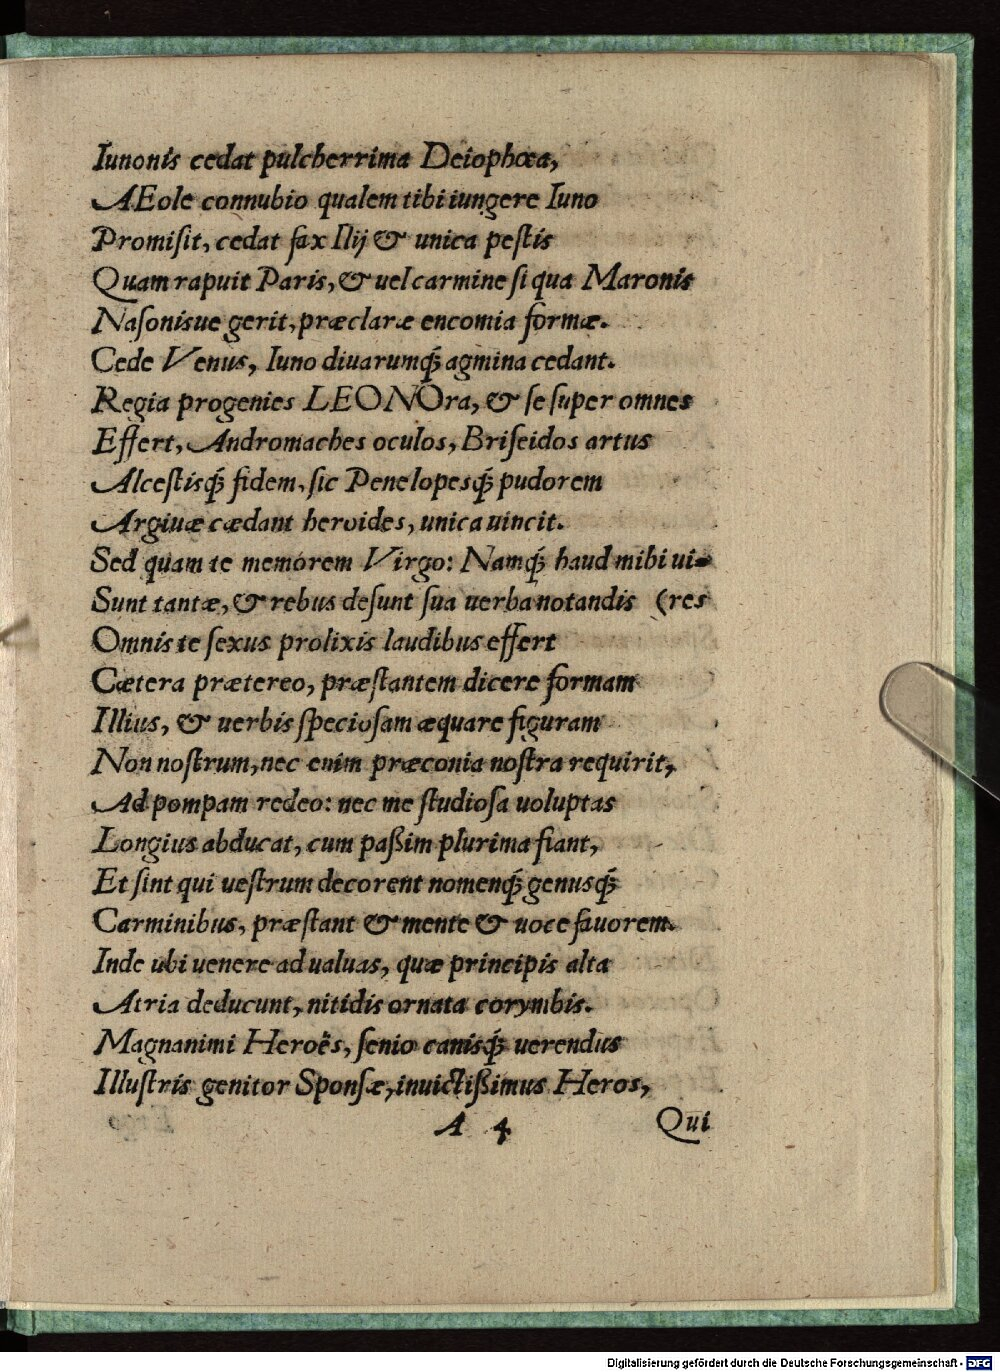 Iunonis cedat pulcherrima Deiophœa,
AEole connubio qualem tibi iungere Iuno
Promiſit, cedat fax Ilij & unica peſtis
Quam rapuit Paris, & uel carmine ſi qua Maronis
Naſonisue gerit, præclaræ encomia formæ.
Cede Venus, Iuno diuarumq́; agmina cedant.
Regia progenies LEONOra, & ſe ſuper omnes
Effert, Andromaches oculos, Briſeidos artus
Alceſtisq́; fidem, ſic Penelopesq́; pudorem
Argiuæ cædant heroides, unica uincit.
Sed quam te memórem Virgo: Namq́; haud mihi ui-
Sunt tantæ, & rebus deſunt ſua uerba notandis (res
Omnis te ſexus prolixis laudibus effert
Cætera prætereo, præſtantem dicere formam
Illius, & uerbis ſpecioſam æquare figuram
Non noſtrum, nec enim præconia noſtra requirit,
Ad pompam redeo: nec me ſtudioſa uoluptas
Longius abducat, cum paßim plurima fiant,
Et ſint qui ueſtrum decorent nomenq́; genusq́;
Carminibus, præſtant & mente & uoce fauorem.
Inde ubi uenere ad ualuas, quæ principis alta
Atria deducunt, nitidis ornata corymbis.
Magnanimi Heroës, ſenio canisq́; uerendus
Illuſtris genitor Sponſæ, inuictißimus Heros,
A 4 Qui
Digitalisierung gefördert durch die Deutsche Forschungsgemeinschaft - DFG